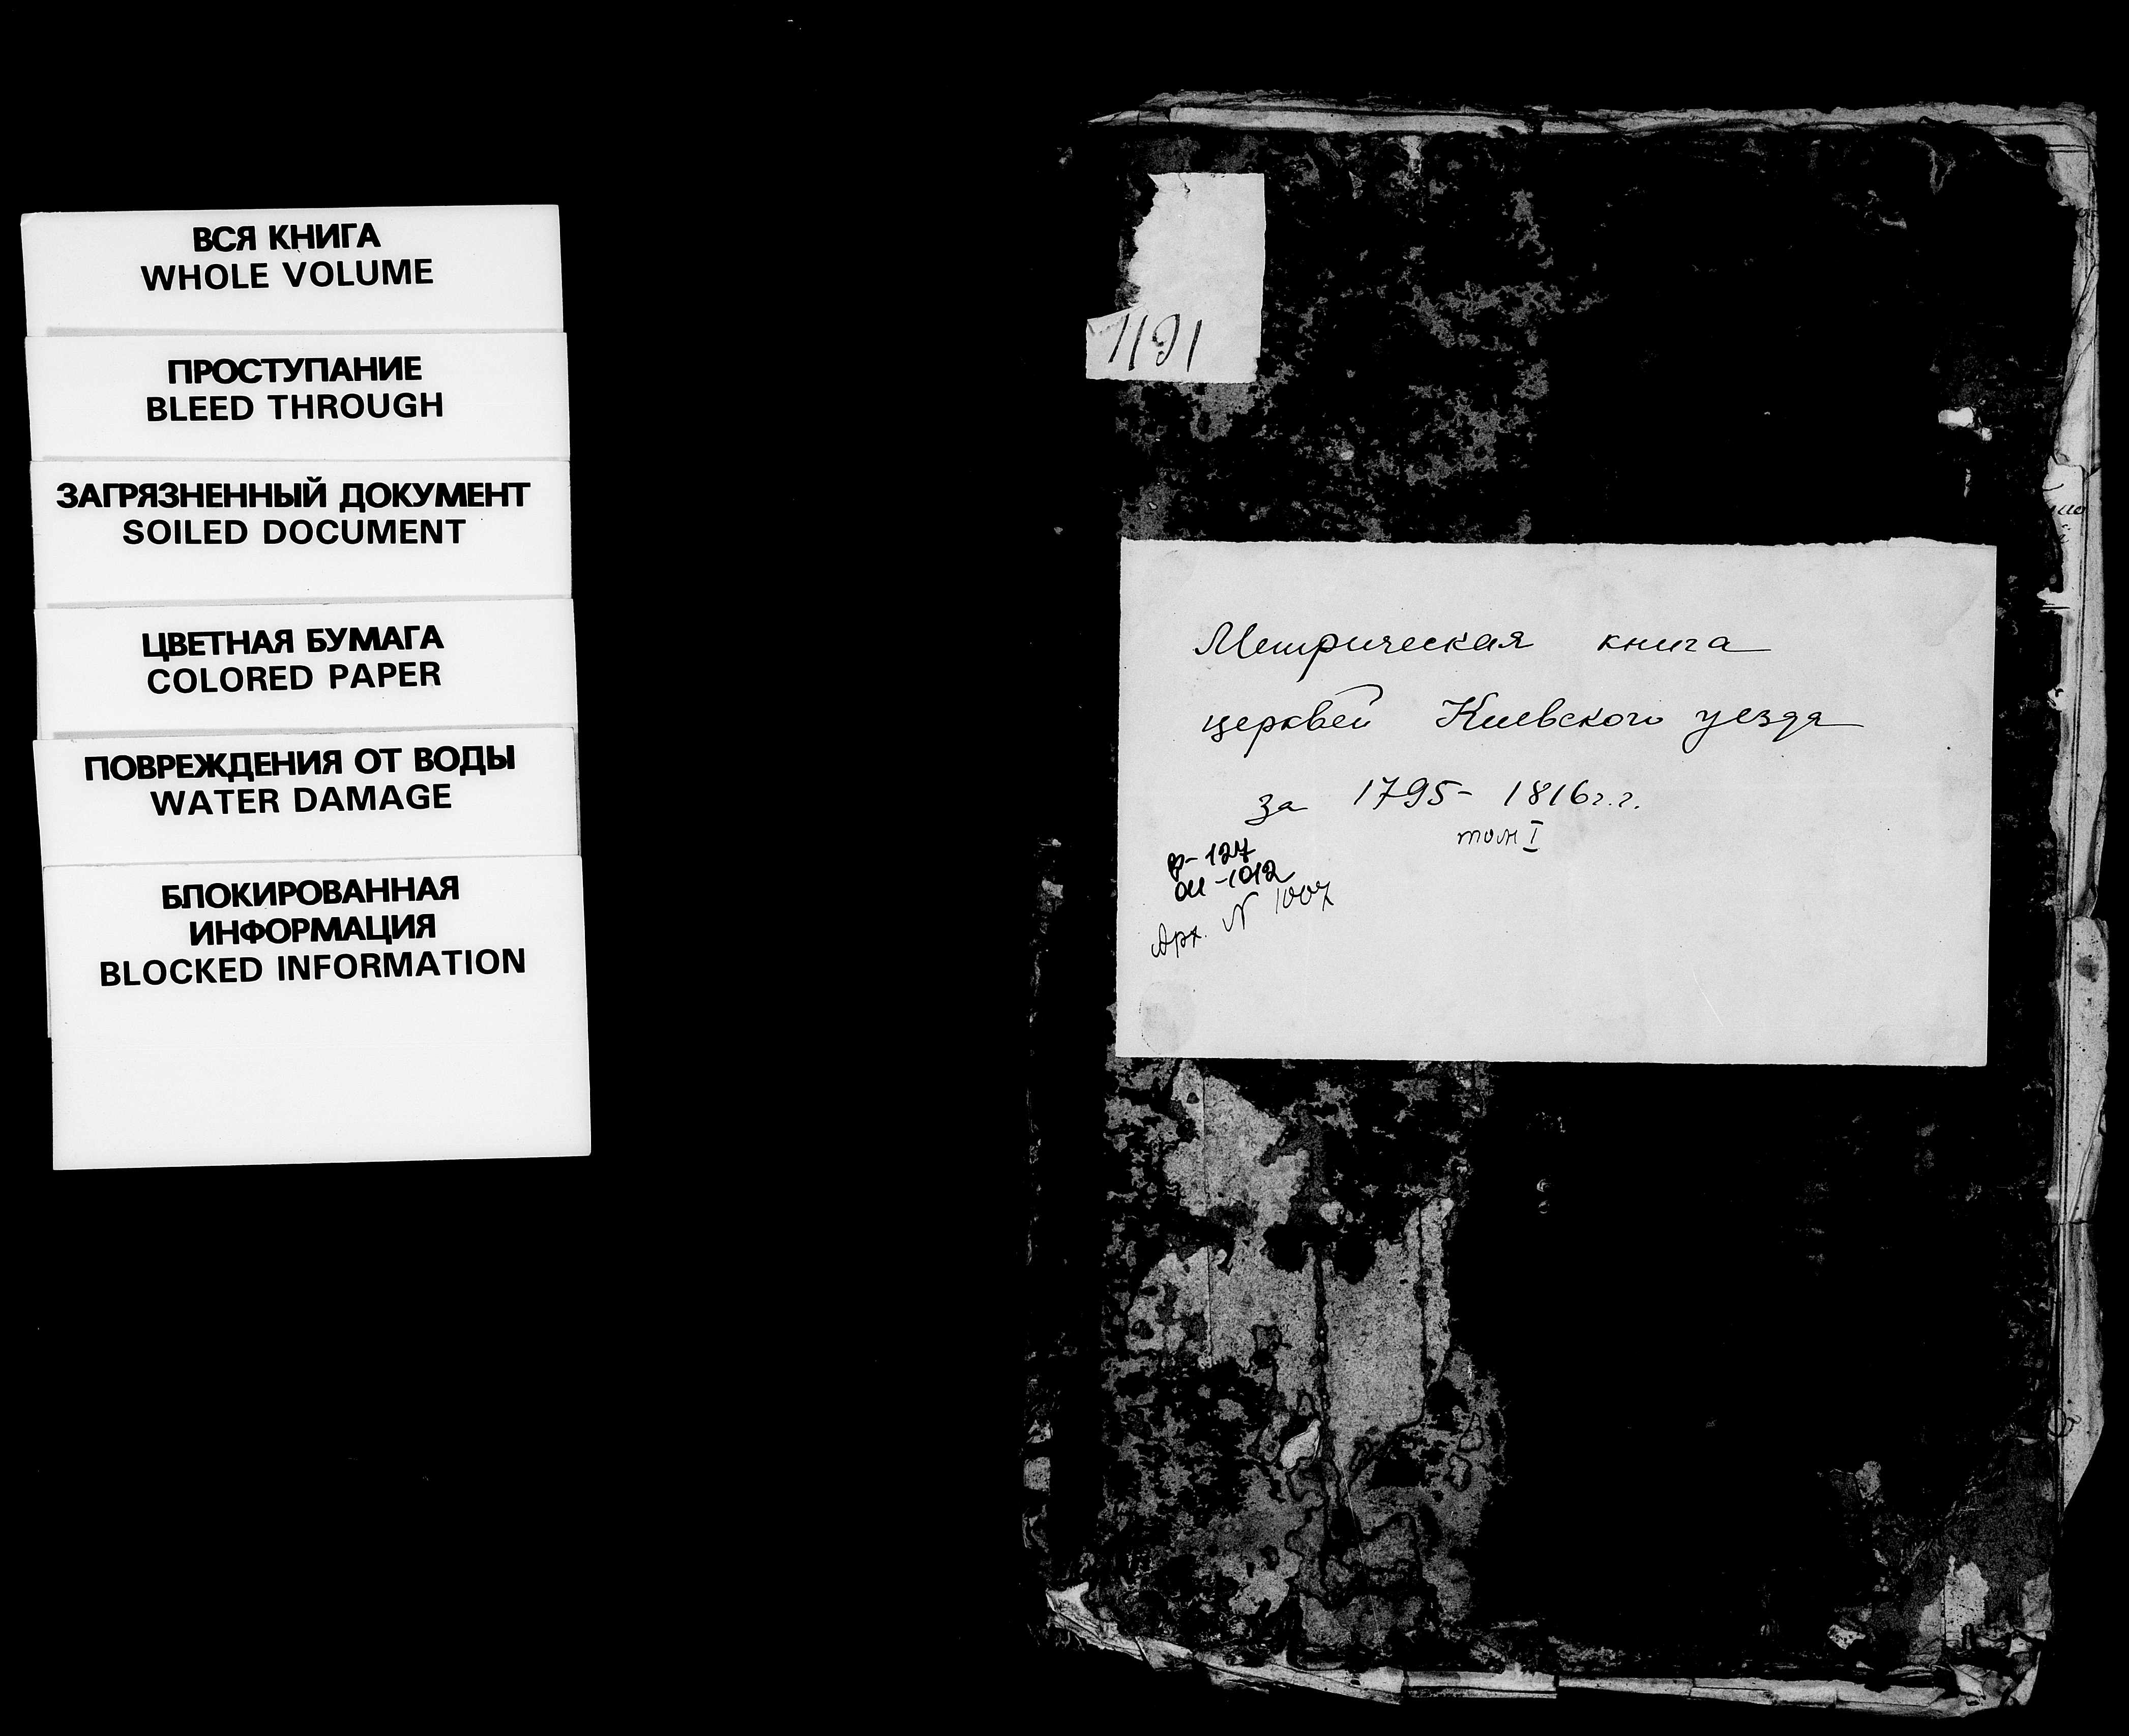 ВСЯ КНИГА
WHOLE VOLUME
ПРОСТУПАНИЕ
BLEED THROUGH
ЗАГРЯЗНЕННЫЙ ДОКУМЕНТ
SOILED DOCUMENT
ЦВЕТНАЯ БУМАГА
COLORED PAPER
ПОВРЕЖДЕНИЯ ОТ ВОДЫ
WATER DAMAGE
БЛОКИРОВАННАЯ
ИНФОРМАЦИЯ
BLOCKED INFORMATION
1191
Метрическая книга
церквей Киевского уезда
за 1795- 1816г.г.
том I
ф- 127
оп -1012
Арх. N 1007